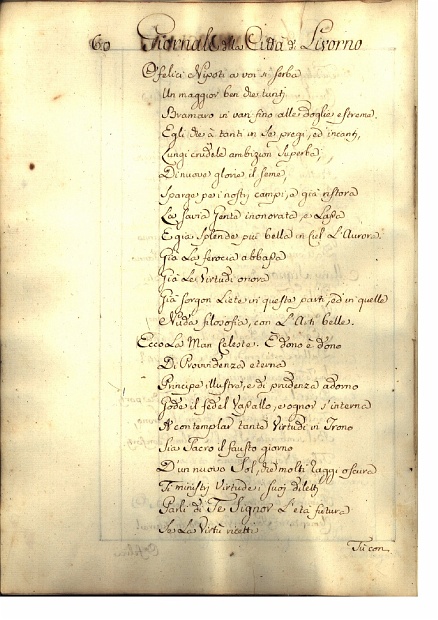 60 Giornale della Città di Livorno
O felici Nipoti a voi si serba
Un maggior ben che tanti
Bramaro in van fino alle doglie estreme.
Egli die à tanti in se pregi, ed incanti,
Lungi crudele ambizion superba,
Di nuove glorie il seme,
Sparge pei nostri campi, e già ristora
La savia Gente inonorata, e lassa
E già splende più bella in Ciel L'Aurora.
Già La ferocia abbassa
Già Le Virtudi onora
Già sorgon Liete in questa parti, ed in quelle
Nuda filosofia, con L'Arti belle.
Ecco La Man Celeste. È dono è dono
Di Providenza eterna
Principe illustre, e di prudenza adorno
Gode il fedel Vassallo, e ognor s'interna
A contemplar tante Virtudi in Trono
Sia Sacro il fausto giorno
D'un nuovo Sol, che molti raggi oscura
Ti ministri Virtude i suoi diletti
Parli di Te Signor L'età futura
Se La Virtù ricetti
Tu con